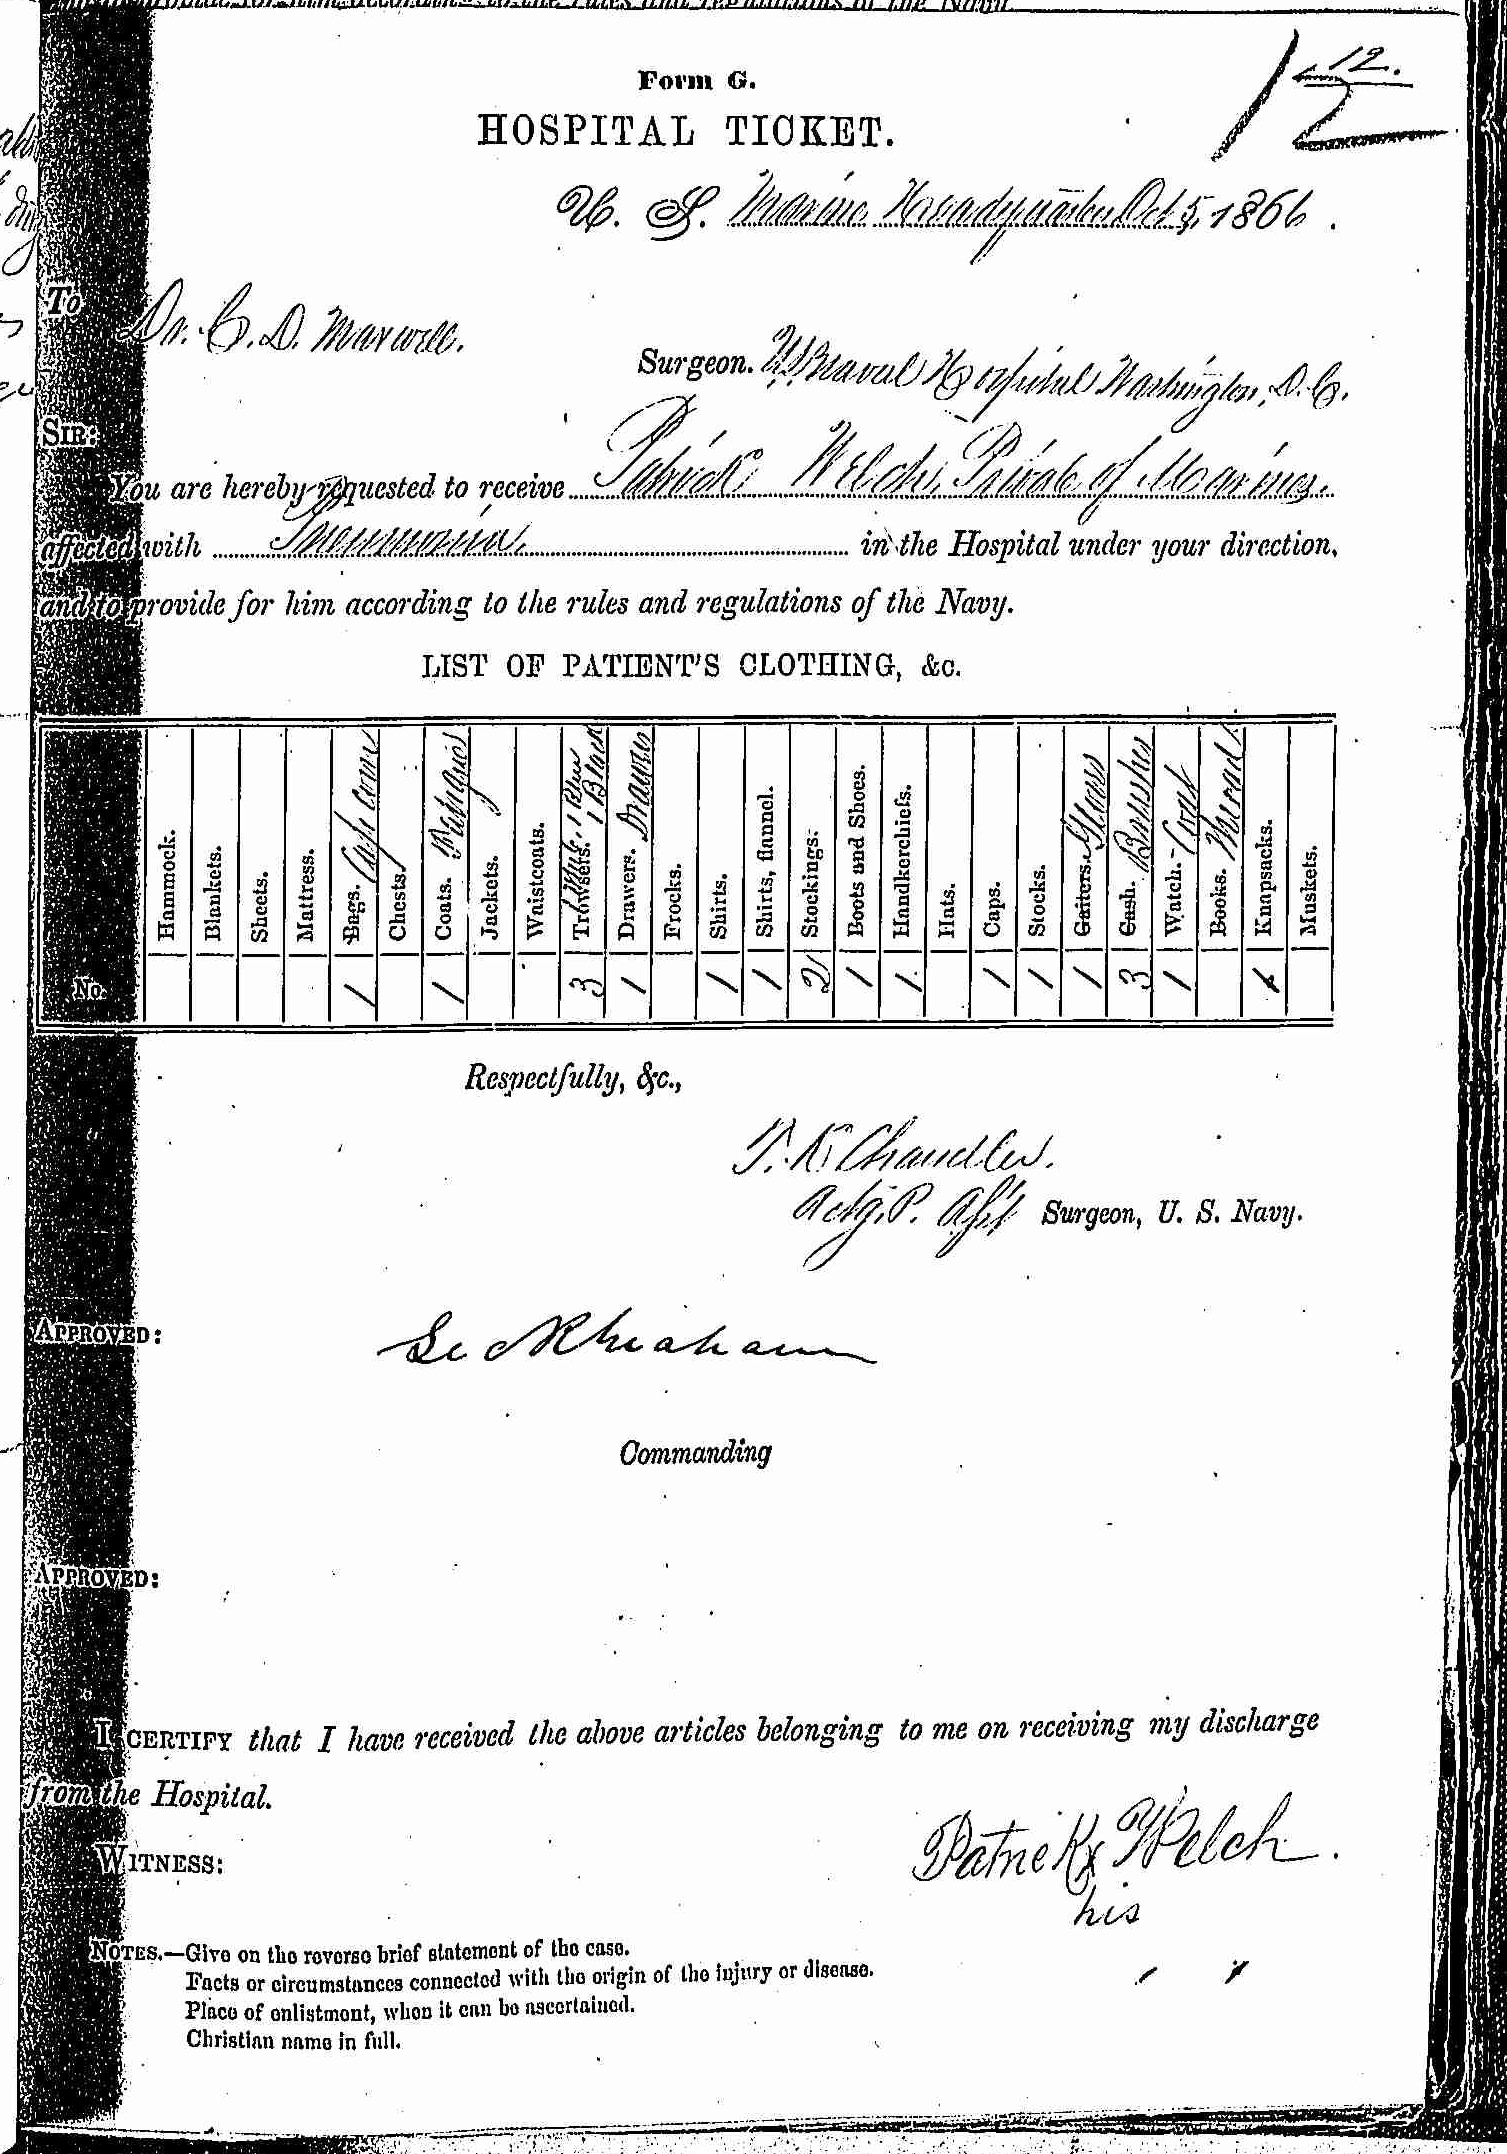 and to provide for him according to the rules and regulations of the Navy.
12.
12
Form G.
HOSPITAL TICKET.
U. S. Marine Headquarters Oct 5, 1866.
To Dr. C. D. Maxwell.
Surgeon. U.S. Naval Hospital Washington, D.C.
SIR:
You are hereby requested to receive Patrick Welch, Private of Marines.
affected with Pneumonia. in the Hospital under your direction,
and to provide for him according to the rules and regulations of the Navy.
LIST OF PATIENT'S CLOTHING, &c.
Hammock. Blankets. Sheets. Mattress. Bags. Chests. Coats. Jackets. Waistcoats. Trowsers. 1 Blue 1 Black Drawers. Drawers Frocks. Shirts. Shirts, flannel. Stockings. Boots and Shoes. Handkerchiefs. Hats. Caps. Stocks. Gaiters. Gloves Cash. Brushes Watch. Books. Thread Knapsacks. Muskets.
No. 1 1 3 1 1 1 2 1 1 1 1 1 3 1 1
Respectfully, &c.,
T. K. Chandler.
Actg. P. Asst Surgeon, U. S. Navy.
APPROVED:
Commanding
APPROVED:
I CERTIFY that I have received the above articles belonging to me on receiving my discharge
from the Hospital.
Patrick x Welch.
his
WITNESS:
NOTES.—Give on the reverse brief statement of the case.
Facts or circumstances connected with the origin of the injury or disease.
Place of enlistment, when it can be ascertained.
Christian name in full.